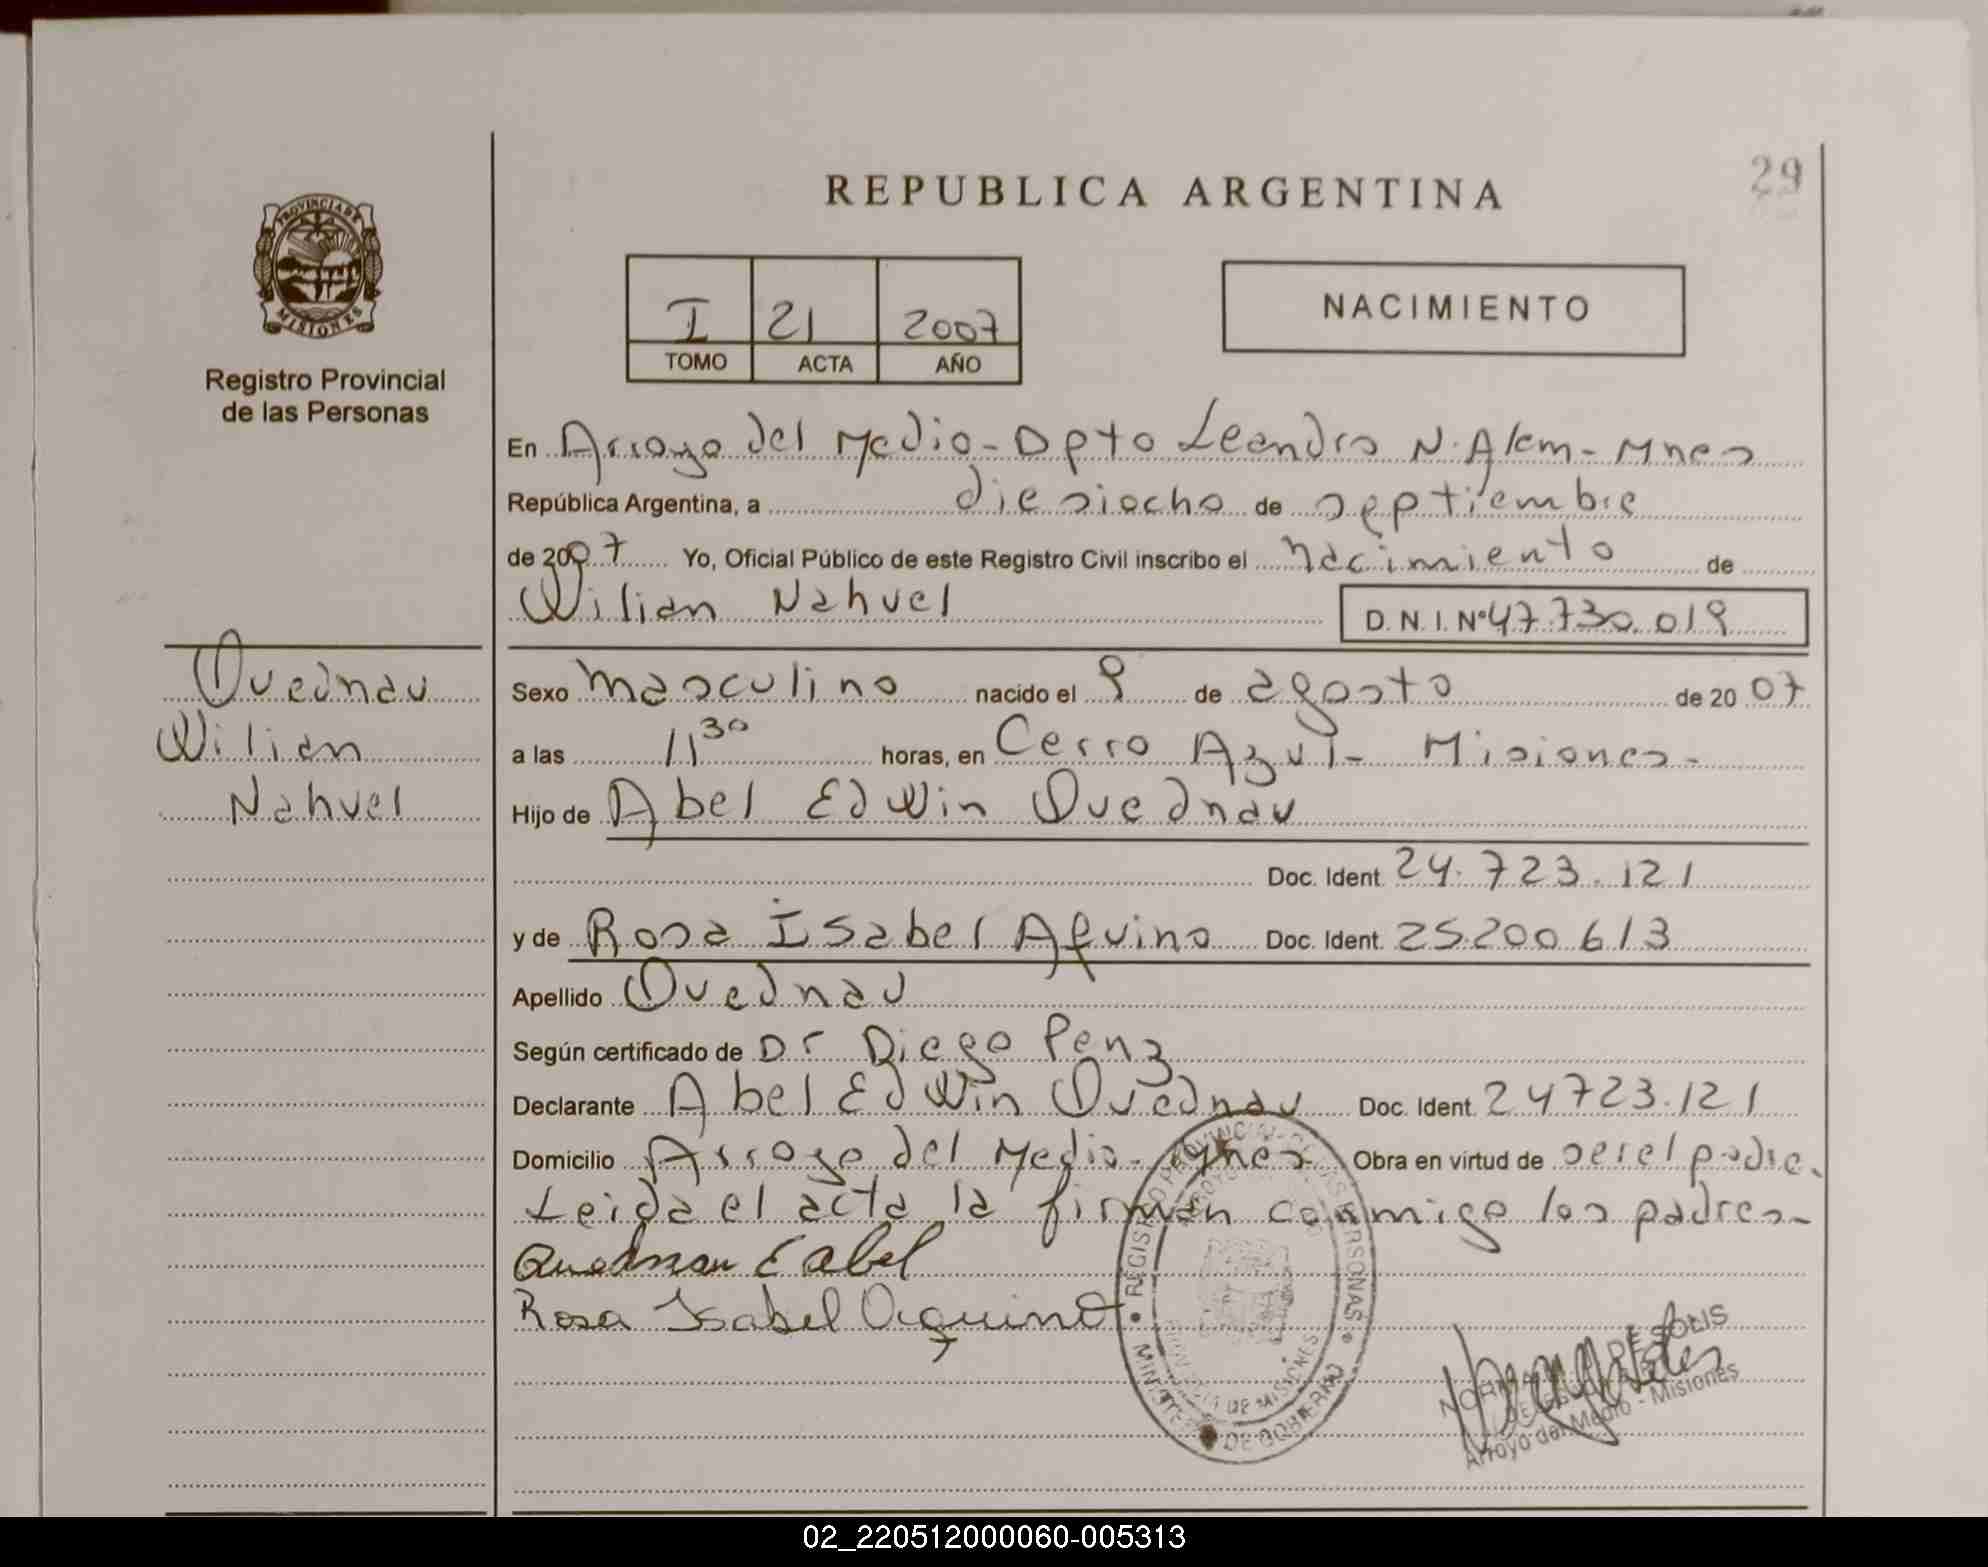 REPUBLICA ARGENTINA
29
PROVINCIA DE
MISIONES
Registro Provincial
de las Personas
I 21 2007
TOMO ACTA AÑO
NACIMIENTO
En Arroyo del Medio - Dpto Leandro N. Alem - Mnes
República Argentina, a diesiocho de septiembre
de 2007 Yo, Oficial Público de este Registro Civil inscribo el Nacimiento de
Wilian Nahuel D.N.I. Nº 47.730.019
Quednau
Wilian
Nahuel
Sexo Masculino nacido el 9 de agosto de 2007
a las 11 30 horas, en Cerro Azul - Misiones -
Hijo de Abel Edwin Quednau
Doc. Ident. 24.723.121
y de Rosa Isabel Aquino Doc. Ident. 25.200.613
Apellido Quednau
Según certificado de Dr Diego Penz
Declarante Abel Edwin Quednau Doc. Ident. 24723.121
Domicilio Arroyo del Medio - Mnes Obra en virtud de ser el padre.
Leida el acta la firman conmigo los padres -
Quednau E abel
Rosa Isabel Aquino
REGISTRO PROVINCIAL DE LAS PERSONAS
MINISTERIO DE GOBIERNO
DE MISIONES
DE SOLIS
Arroyo del Medio - Misiones
02_220512000060-005313